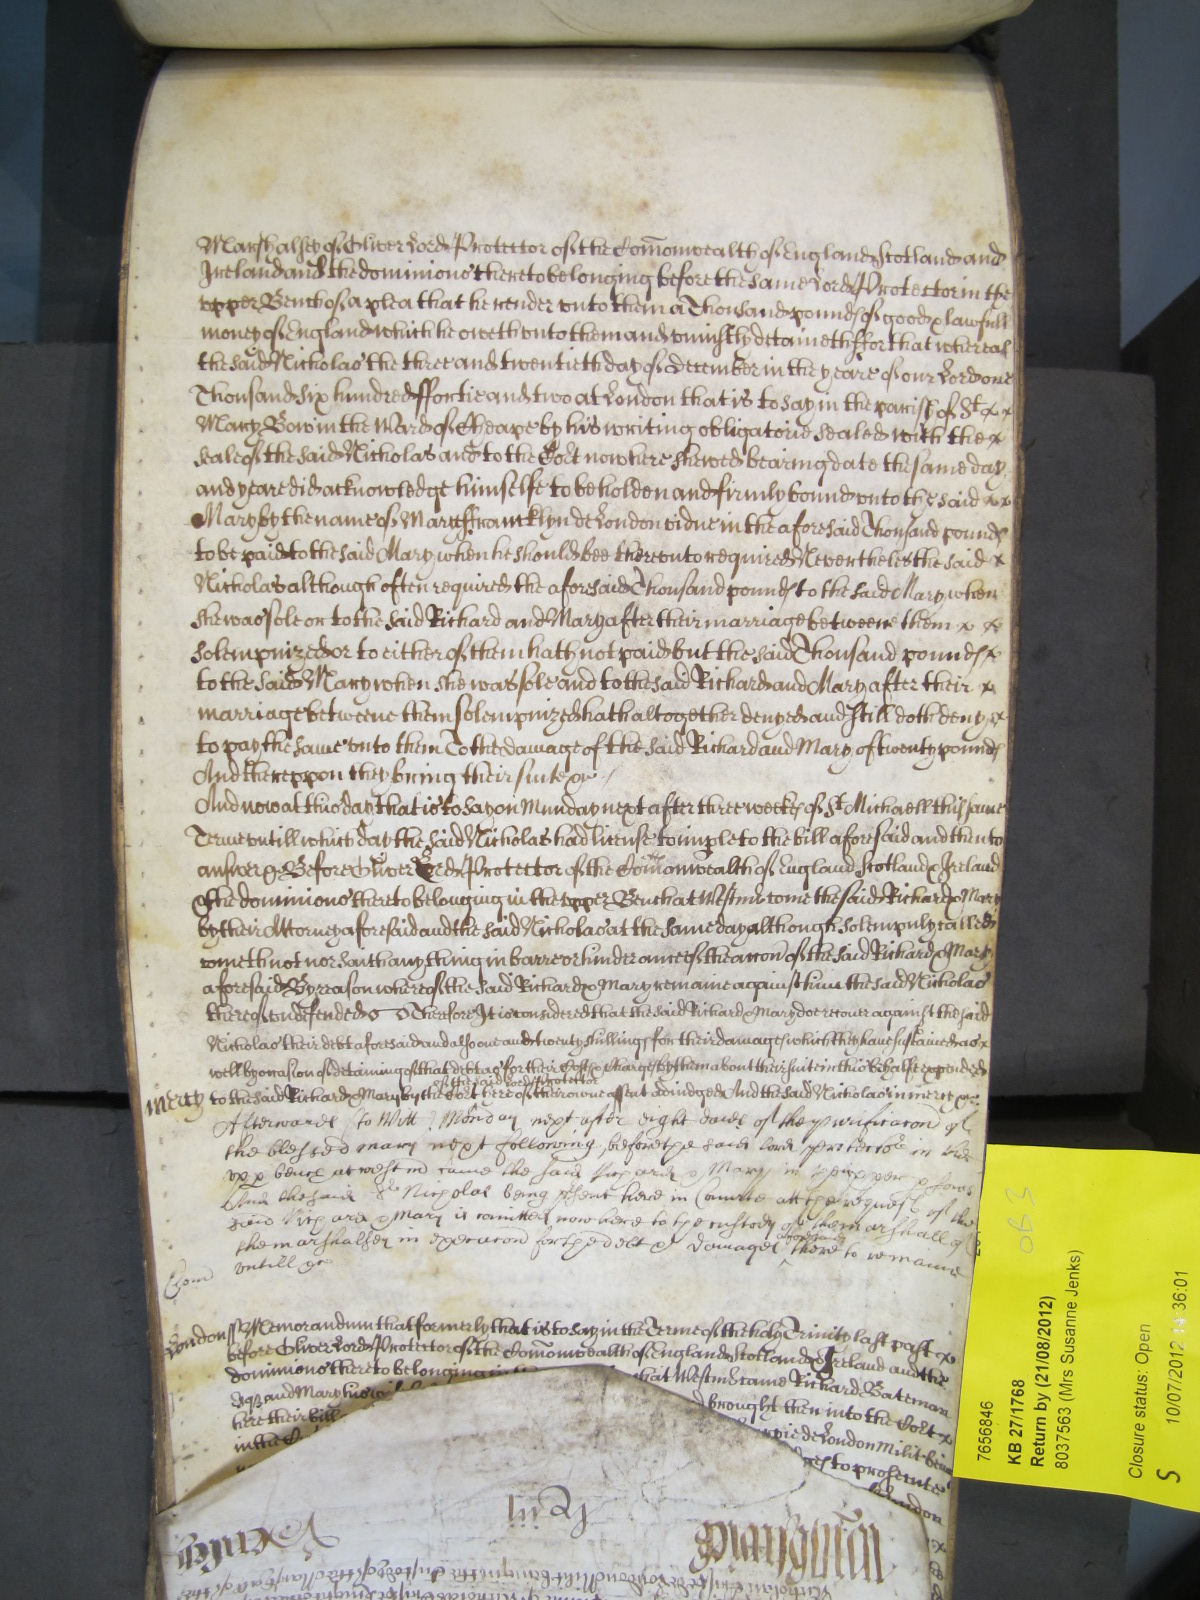 Marshalsey of Oliver Lord Protector of the Com̄onwealth of England Scotland and
Ireland and the dominions thereto belonging before the same Lord Protector in the
upper Bench of a plea that he render unto them a Thousand pounds of good & lawfull
money of England which he oweth unto them and uniustly detaineth ffor that whereas
the said Nicholas the three and twentieth day of December in the yeare of our Lord one
Thousand six hundred ffortie and two at London that is to say in the parish of St x x
Mary Bow in the Ward of Cheape by his writing obligatorie sealed with the x
seale of the said Nicholas and to the Cort now here shewed bearing date the same day
and yeare did acknowledge himselfe to be holden and firmly bound unto the said x x
Mary by the name of Mary ffrancklyn de London vidue in the aforesaid Thousand pounds
to be paid to the said Mary when he should bee thereunto required Neverthelesthe said x
Nicholas although often required the aforesaid Thousand pounds to the said Mary when
she was sole or to the said Richard and Mary after their marriage betweene them x x
solempnized or to either of them hath not paid but the said Thousand pounds x
to the said Mary when she was sole and to the said Richard and Mary after their x
marriage betweene them solempnized hath altogether denyed and still doth deny x
to pay the same unto them To the damage of the said Richard and Mary of twenty pounds
And thereuppon they bring their suite &c
And now at this day that is to say on Munday next after three weekes of St Michaell this same
Terme untill which day the said Nicholas had license to imple to the bill aforesaid and then to
answer &c Before Oliver Lord Protector of the Com̄onwealth of England Scotland & Ireland
& the dominions thereto belonging in the upper Bench at Westmr come the said Richard & Mary
by their Attorney aforesaid and the said Nicholas at the same day although solempnly called
cometh not nor saith any thing in barre or hinderance of the accon̄ of the said Richard & Mary
aforesaid By reason whereof the said Richard & Mary remaine against him the said Nicholas
thereof undefended Therefore It is considered that the said Richard & Mary doe recover against the said
Nicholas their debt aforesaid and alsoe one and twenty shillings for their damages which they have sustained as x
well by occasion of detaining of that debt as for their Costs & charges by them about their suite in this behalfe expended
of the said Lord Protector
mercy to the said Richard & Mary by the Cort here of their owne assent adiudged And the said Nicholas in mercy &c
Afterwards to Witt Monday next after eight daies of the purificacon of
the blessed mary next following before the said lord protector in the
upp bench at westm̄ came the said Richard & Mary in
And the said Nicholas being psent here in Courte att the request of the
said Richard & Mary is comitted now here to the custody of the marshall of
aforesaid
the marshalsey in execucon for the debt & damages there to remaine
untill &c
London ss Memorandum that formerly that is to say in the Terme of the holy Trinity last past x
before Oliver Lord Protector of the Com̄onwealth of England Scotland & Ireland and the
dominions thereto belonging in that Westmr came Richard Bateman
Esqr and Mary his brought then into the Cort x
here their bill de London Milit
in the to prosecute
London
7656846
KB 27/1768
Return by (21/08/2012)
8037563 (Mrs Susanne Jenks)
Closure status: Open
S 10/07/2012 36:01